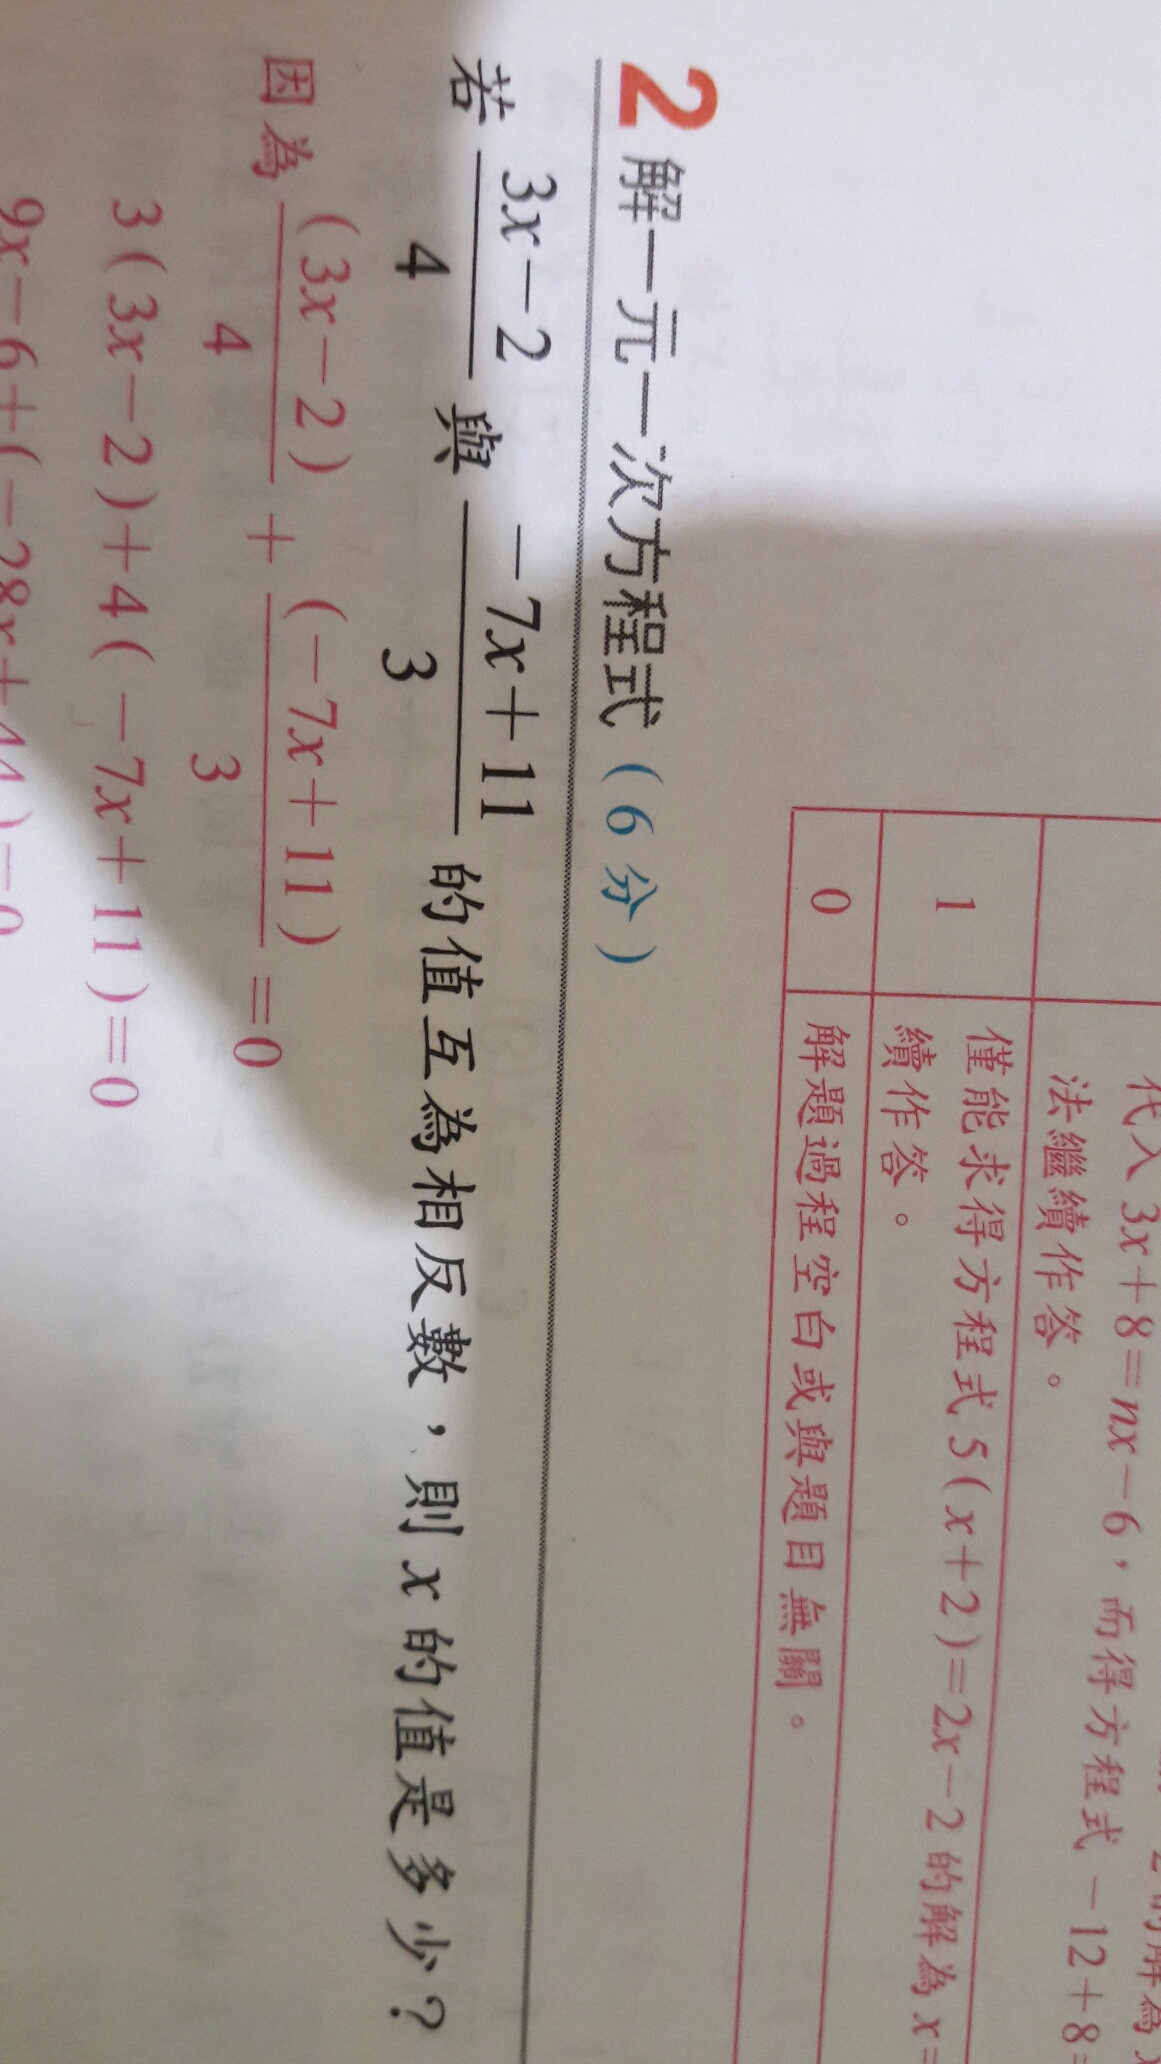 代入 3x+8=nx-6，而得方程式 -12+8=
法繼續作答。
1 僅能求得方程式 5(x+2)=2x-2 的解為 x=
續作答。
0 解題過程空白或與題目無關。
2 解一元一次方程式（6 分）
若 (3x-2)/4 與 (-7x+11)/3 的值互為相反數，則 x 的值是多少？
因為 (3x-2)/4 + (-7x+11)/3 =0
3(3x-2)+4(-7x+11)=0
9x-6+(-28x+44)=0